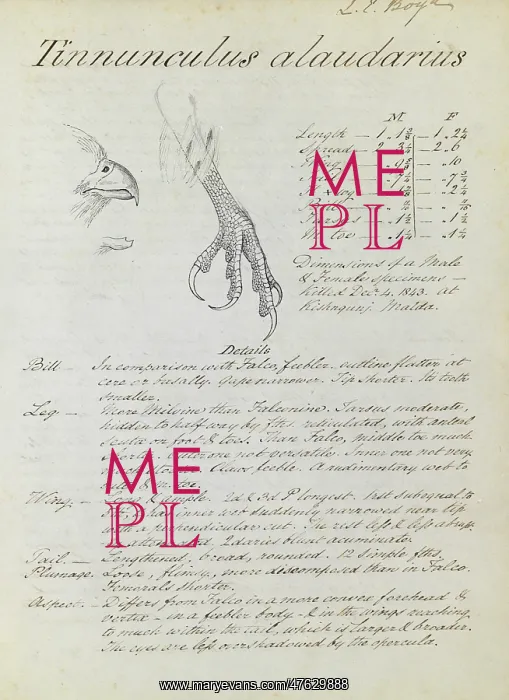 L. C. Boyd
Tinnunculus alaudarius
M. F
Length — 1. 1 — 1. 2
Spread 2. 3 — 2. 6
ME
PL
Dimensions of a Male
& Female specimens —
killed Dec. 4. 1843. at
Kishngunj. Malda.
Details
Bill — In comparison with Falco, feebler. outline flatter at
cere or basally. Gape narrower. Tip shorter. Its teeth
smaller.
Leg — More Milvine than Falconine. Tarsus moderate,
hidden to half way by fths. reticulated, with anterl
scuta on foot & toes. Than Falco, middle toe much
shorter. outer one not versatile. Inner one not very
Claws feeble. A rudimentary web to
ME
PL
Wing. — Long & ample. 2d & 3d P longest. 1st subequal to
has inner web suddenly narrowed near tip
with a perpendicular cut. The rest less & less
2daries blunt acuminate.
Tail. — Lengthened, broad, rounded. 12 simple fths.
Plumage. Loose, flimsy, more discomposed than in Falco.
Femorals shorter.
Aspect. — Differs from Falco in a more convex forehead &
vertex – in a feebler body – & in the wings reaching
to much within the tail, which is larger & broader.
The eyes are less overshadowed by the opercula.
www.maryevans.com/47629888